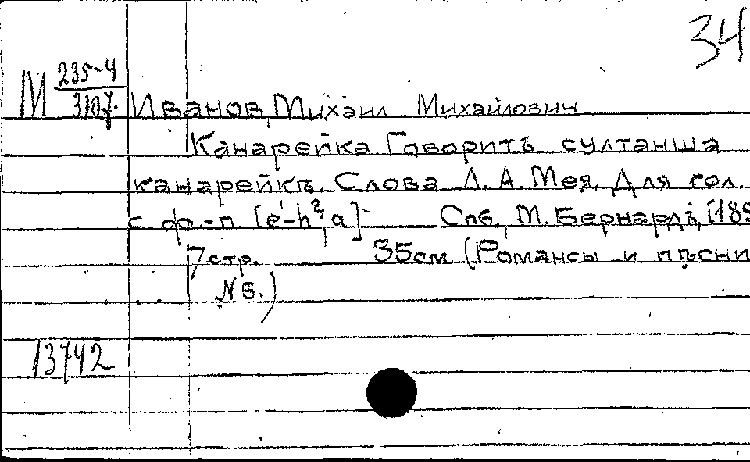 34
М 235-4
3107. Иванов, Михаил Михайлович
Канарейка. Говоритъ султанша
канарейкѣ. Слова Л. А. Мея. Для гол.
с ф.-п. [e¹-h²,a] Спб., М. Бернардъ, [189
7 стр. 35 см (Романсы и пѣсни
№6.)
13742